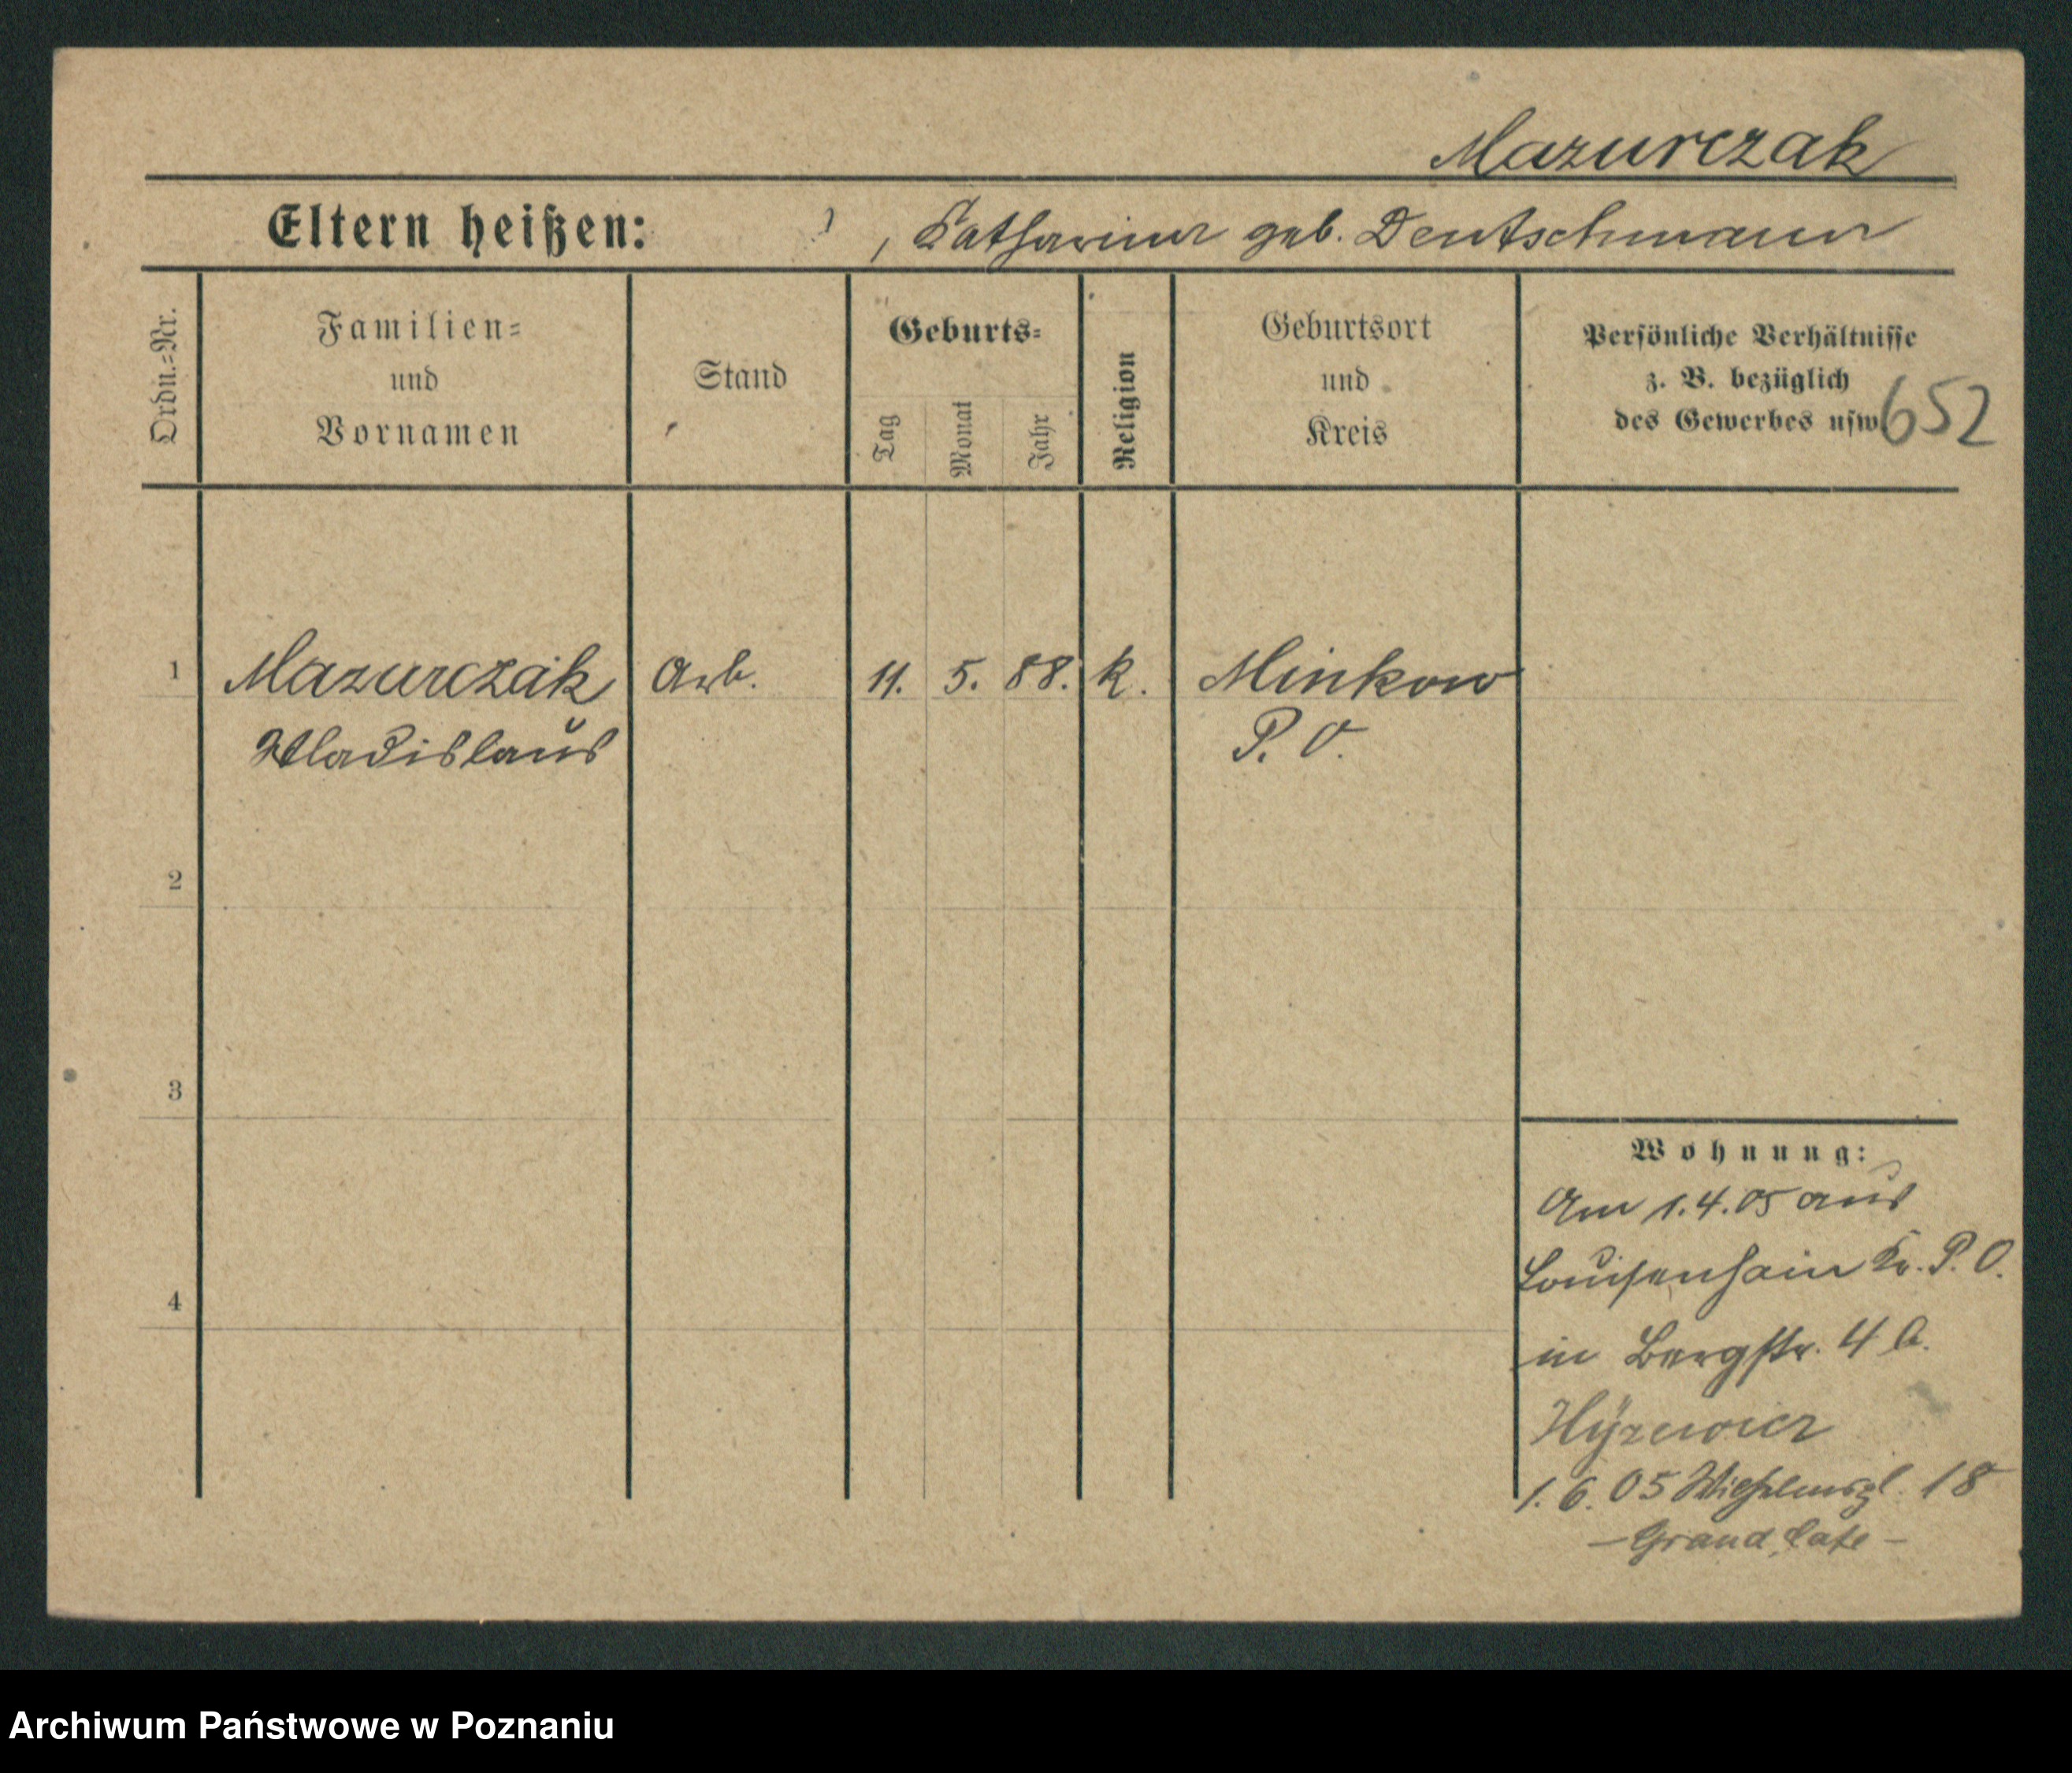 Mazurczak
Eltern heißen: ?, Katharina geb. Deutschmann
Ordn.=Nr.
Familien=
und
Vornamen
Stand
Geburts=
Tag
Monat
Jahr
Religion
Geburtsort
und
Kreis
Persönliche Verhältnisse
z. B. bezüglich
des Gewerbes usw.
652
1 Mazurczak Arb. 11. 5. 88. k. Minkowo
Wladislaus P. O.
2
3
4
Wohnung:
Am 1.4.05 aus
Louisenhain Kr. P. O.
in Bergstr. 4 b.
1. 6. 05 Wilhelmspl. 18
– Grand Cafe –
Archiwum Państwowe w Poznaniu